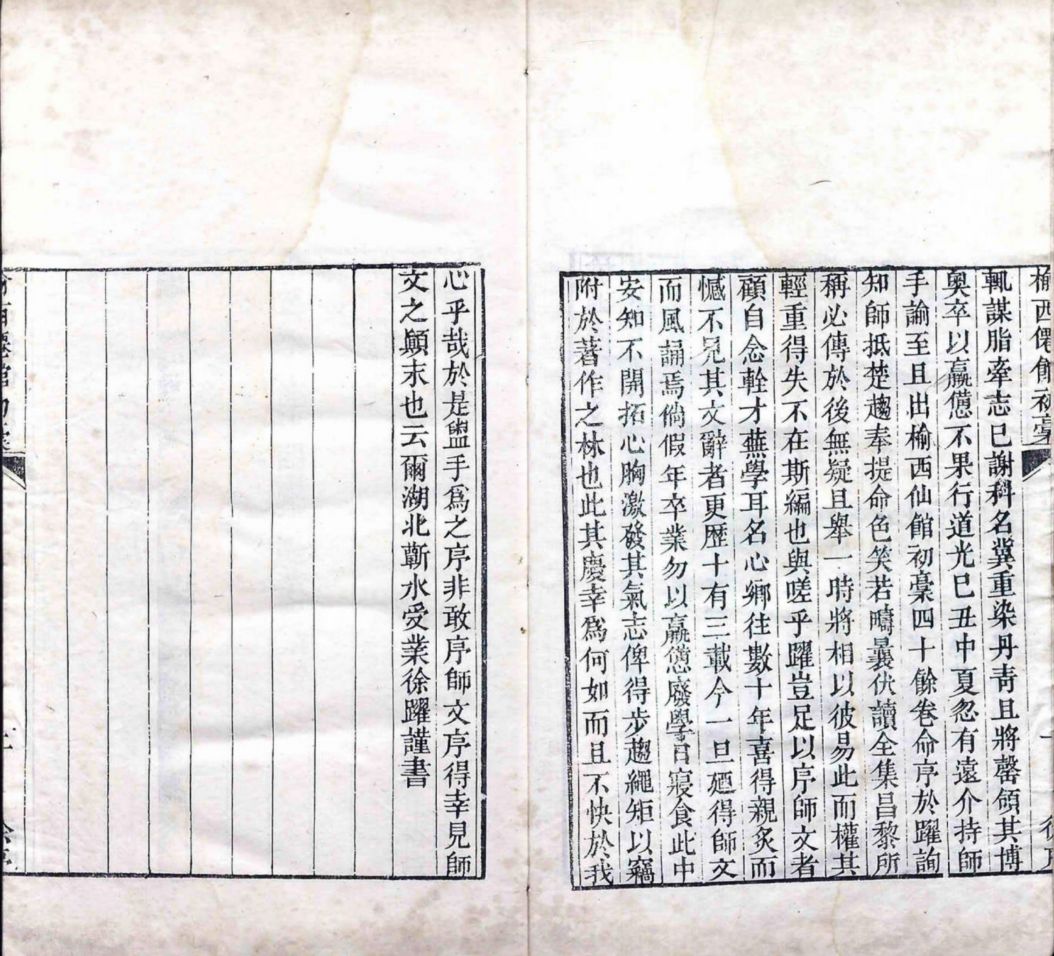 榆西僊館初稾
輒謀脂牽志已謝科名冀重染丹青且將罄領其博
奧卒以羸憊不果行道光己丑中夏忽有遠介持師
手諭至且出榆西仙館初稾四十餘卷命序於躍詢
知師抵楚趨奉提命色笑若疇曩伏讀全集昌黎所
稱必傳於後無疑且舉一時將相以彼易此而權其
輕重得失不在斯編也與嗟乎躍豈足以序師文者
顧自念輇才蕪學耳名心鄉往數十年喜得親炙而
憾不見其文辭者更歷十有三載今一旦廼得師文
而風誦焉倘假年卒業勿以羸憊廢學日寢食此中
安知不開拓心胸激發其氣志俾得步趨繩矩以竊
附於著作之林也此其慶幸為何如而且不快於我
心乎哉於是盥手爲之序非敢序師文序得幸見師
文之顛末也云爾湖北蘄水受業徐躍謹書